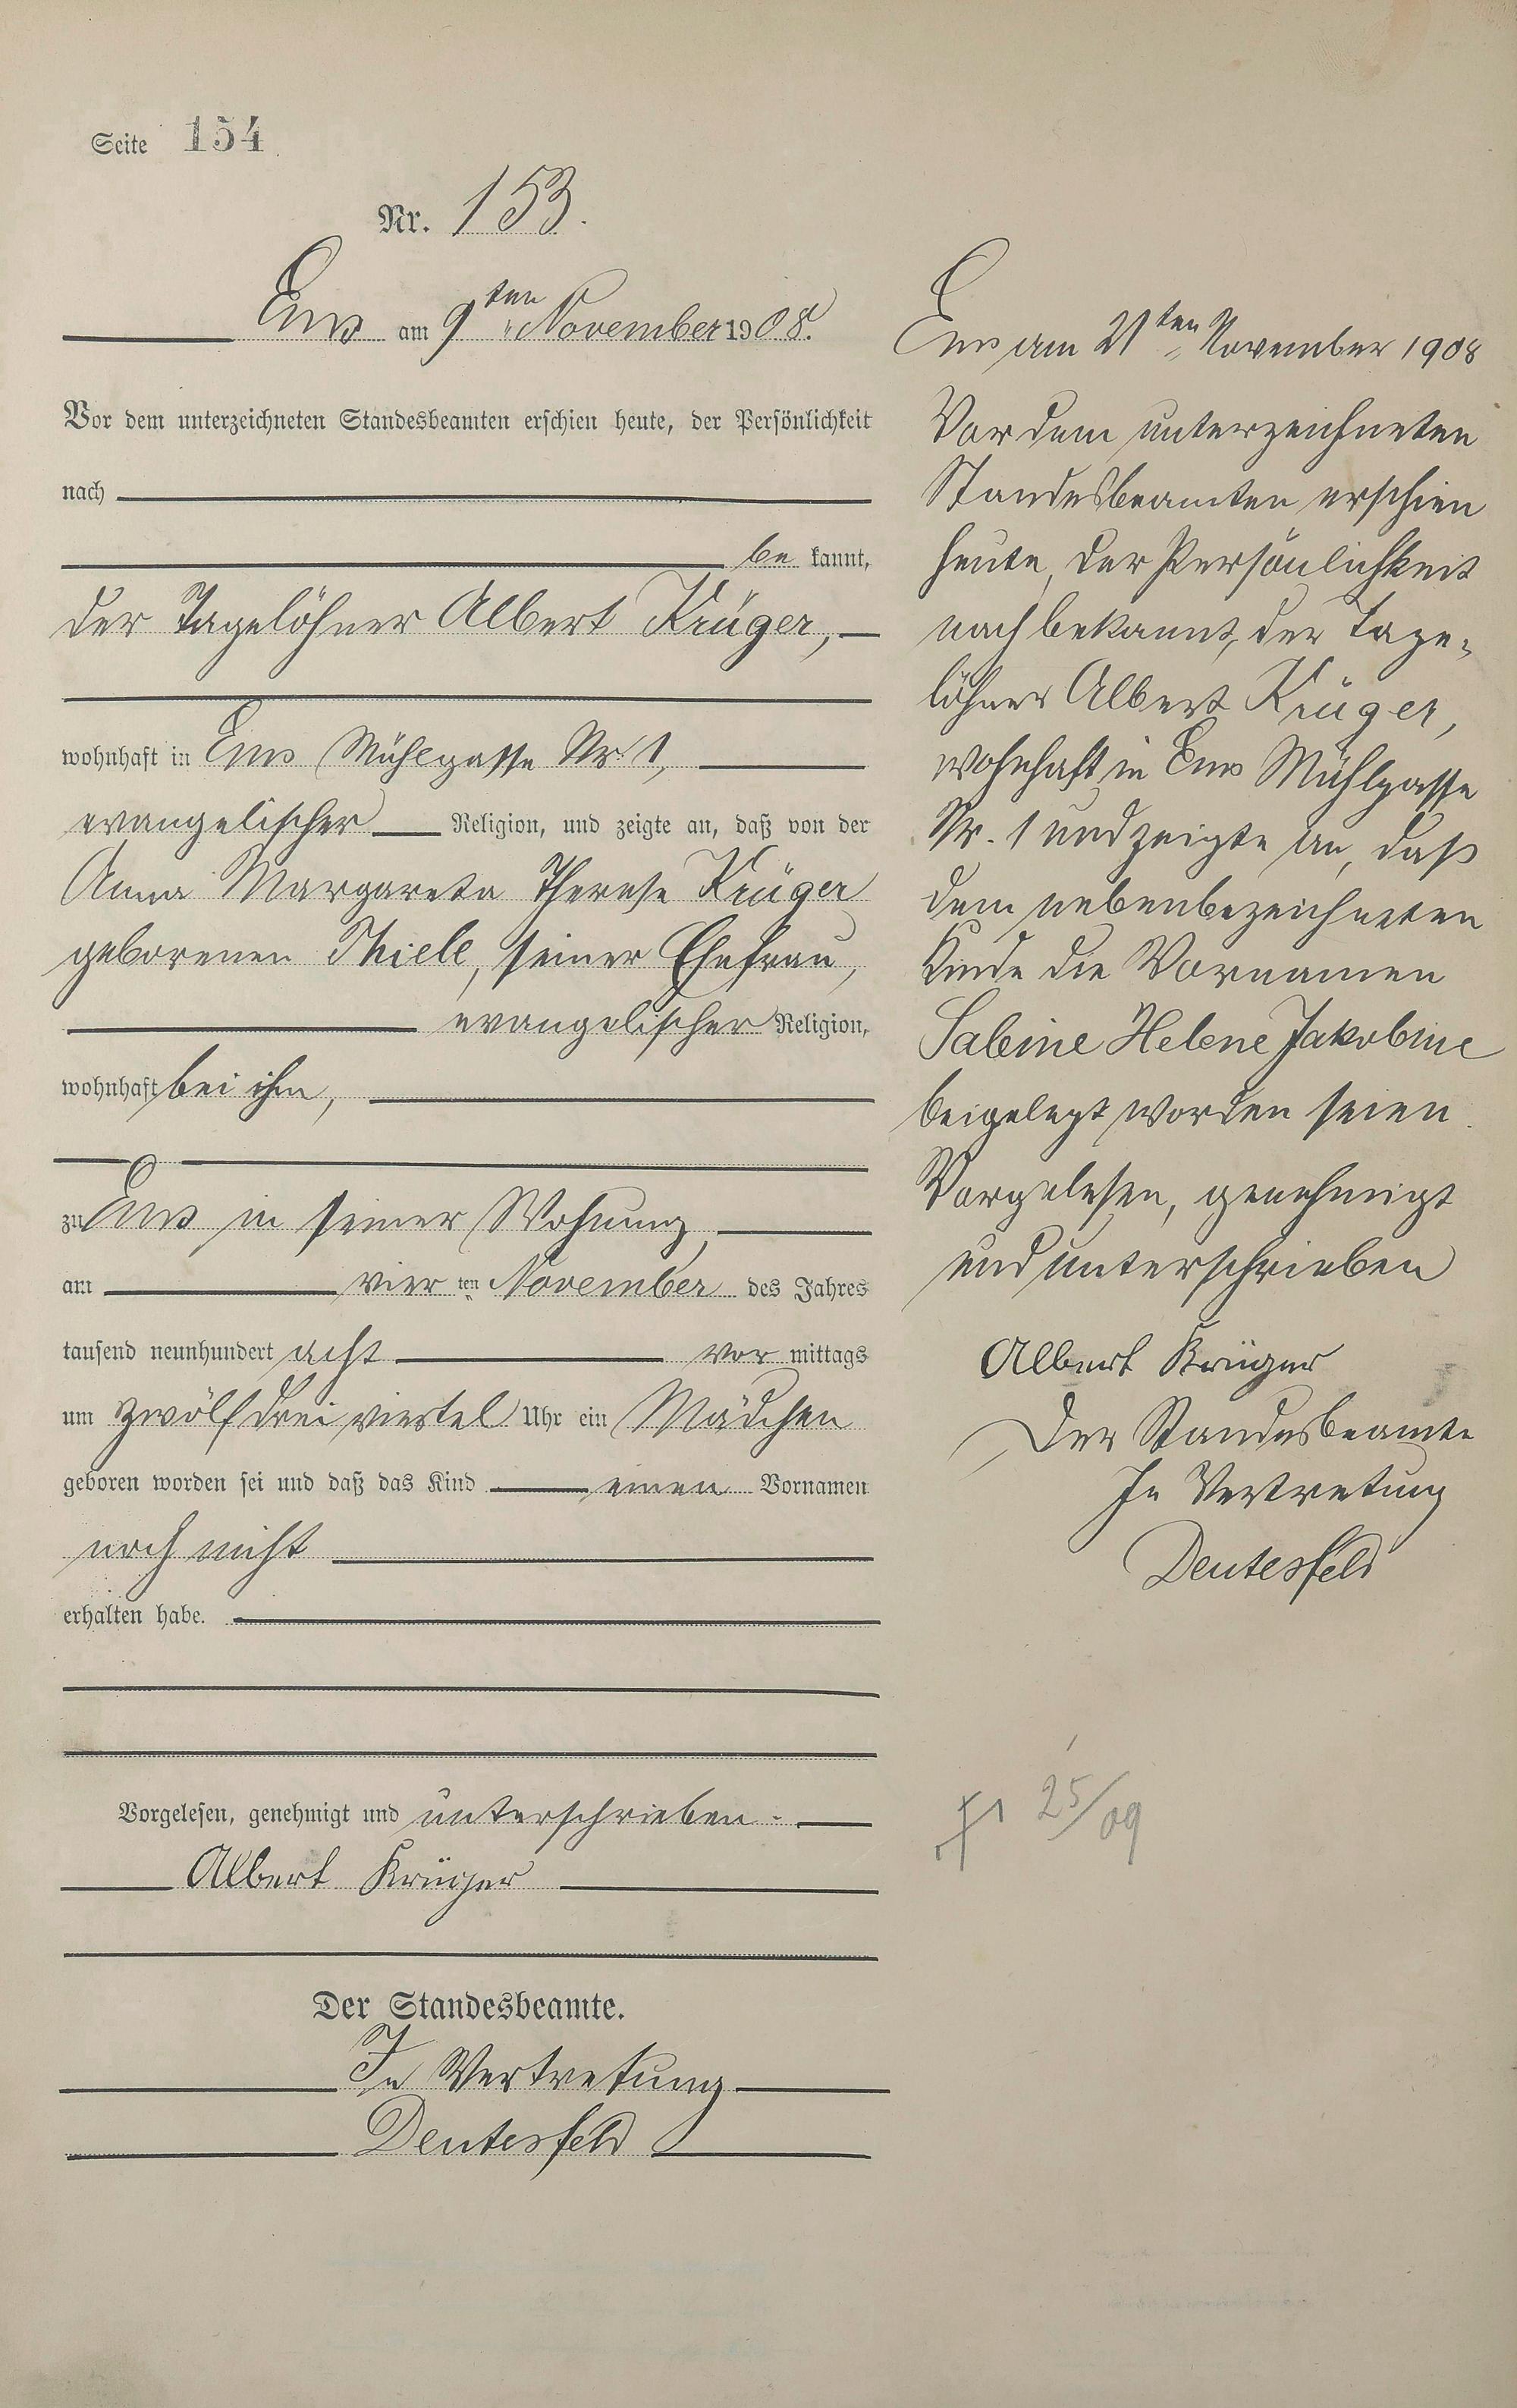 Seite 154
Nr. 153.
Ems am 9ten November 1908.
Vor dem unterzeichneten Standesbeamten erschien heute, der Persönlichkeit
nach
be kannt,
der Tagelöhner Albert Krüger,
wohnhaft in Ems Mühlgasse Nr. 1,
evangelischer Religion, und zeigte an, daß von der
Anna Margareta Therese Krüger
geborenen Thiele, seiner Ehefrau,
evangelischer Religion,
wohnhaft bei ihm,
zu Ems in seiner Wohnung,
am vier ten November des Jahres
tausend neunhundert acht vor mittags
um zwölf drei viertel Uhr ein Mädchen
geboren worden sei und daß das Kind einen Vornamen
noch nicht
erhalten habe.
Vorgelesen, genehmigt und unterschrieben.
Albert Krüger
Der Standesbeamte.
In Vertretung
Deutesfeld
Ems am 21ten November 1908
Vor dem unterzeichneten
Standesbeamten erschien
heute, der Persönlichkeit
nach bekannt, der Tage-
löhner Albert Krüger,
wohnhaft in Ems Mühlgasse
Nr. 1 und zeigte an, daß
dem nebenbezeichneten
Kinde die Vornamen
Sabine Helene Jakobine
beigelegt worden seien.
Vorgelesen, genehmigt
und unterschrieben
Albert Krüger
Der Standesbeamte
In Vertretung
Deutesfeld
25/09